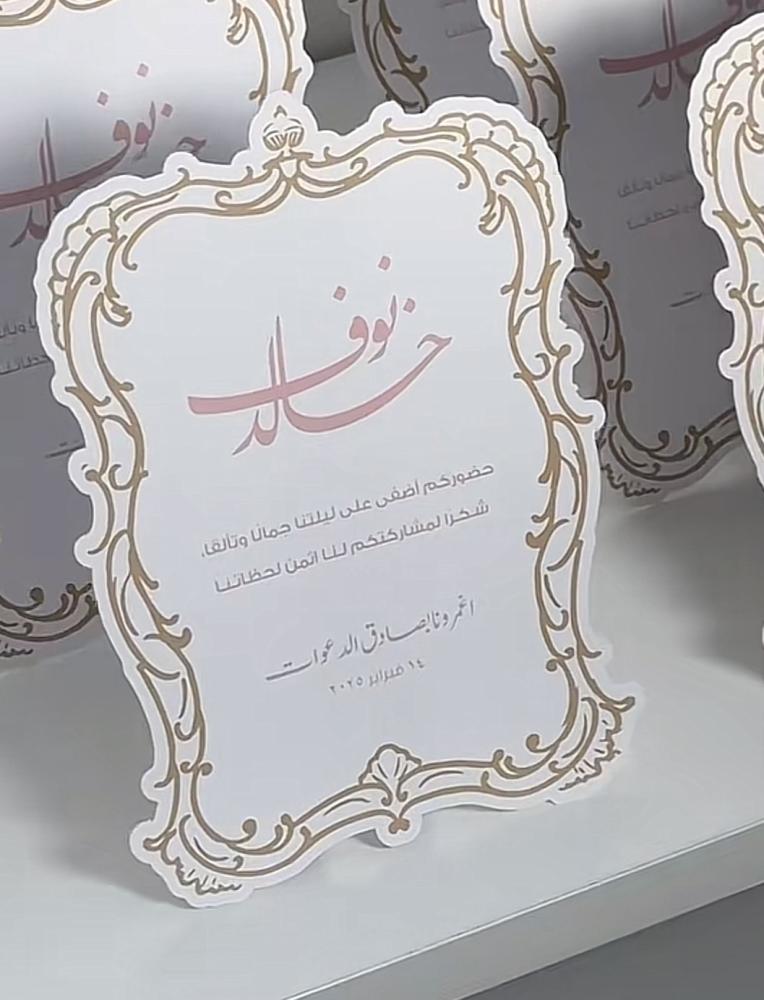 نوف
خالد
حضوركم أضفى على ليلتنا جمالًا وتألقا،
شكرًا لمشاركتكم لنا اثمن لحظاتنا
اغمرونا بصادق الدعوات
١٤ فبراير ٢٠٢٥